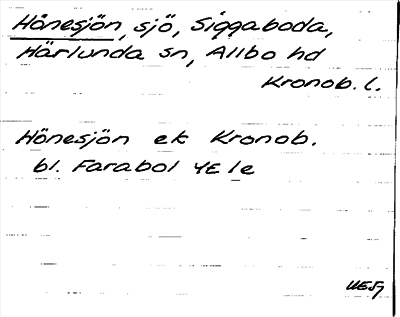 Hönesjön, sjö, Siggaboda,
Härlunda sn, Allbo hd
Kronob. l.
Hönesjön ek Kronob.
bl. Farabol 4E 1e